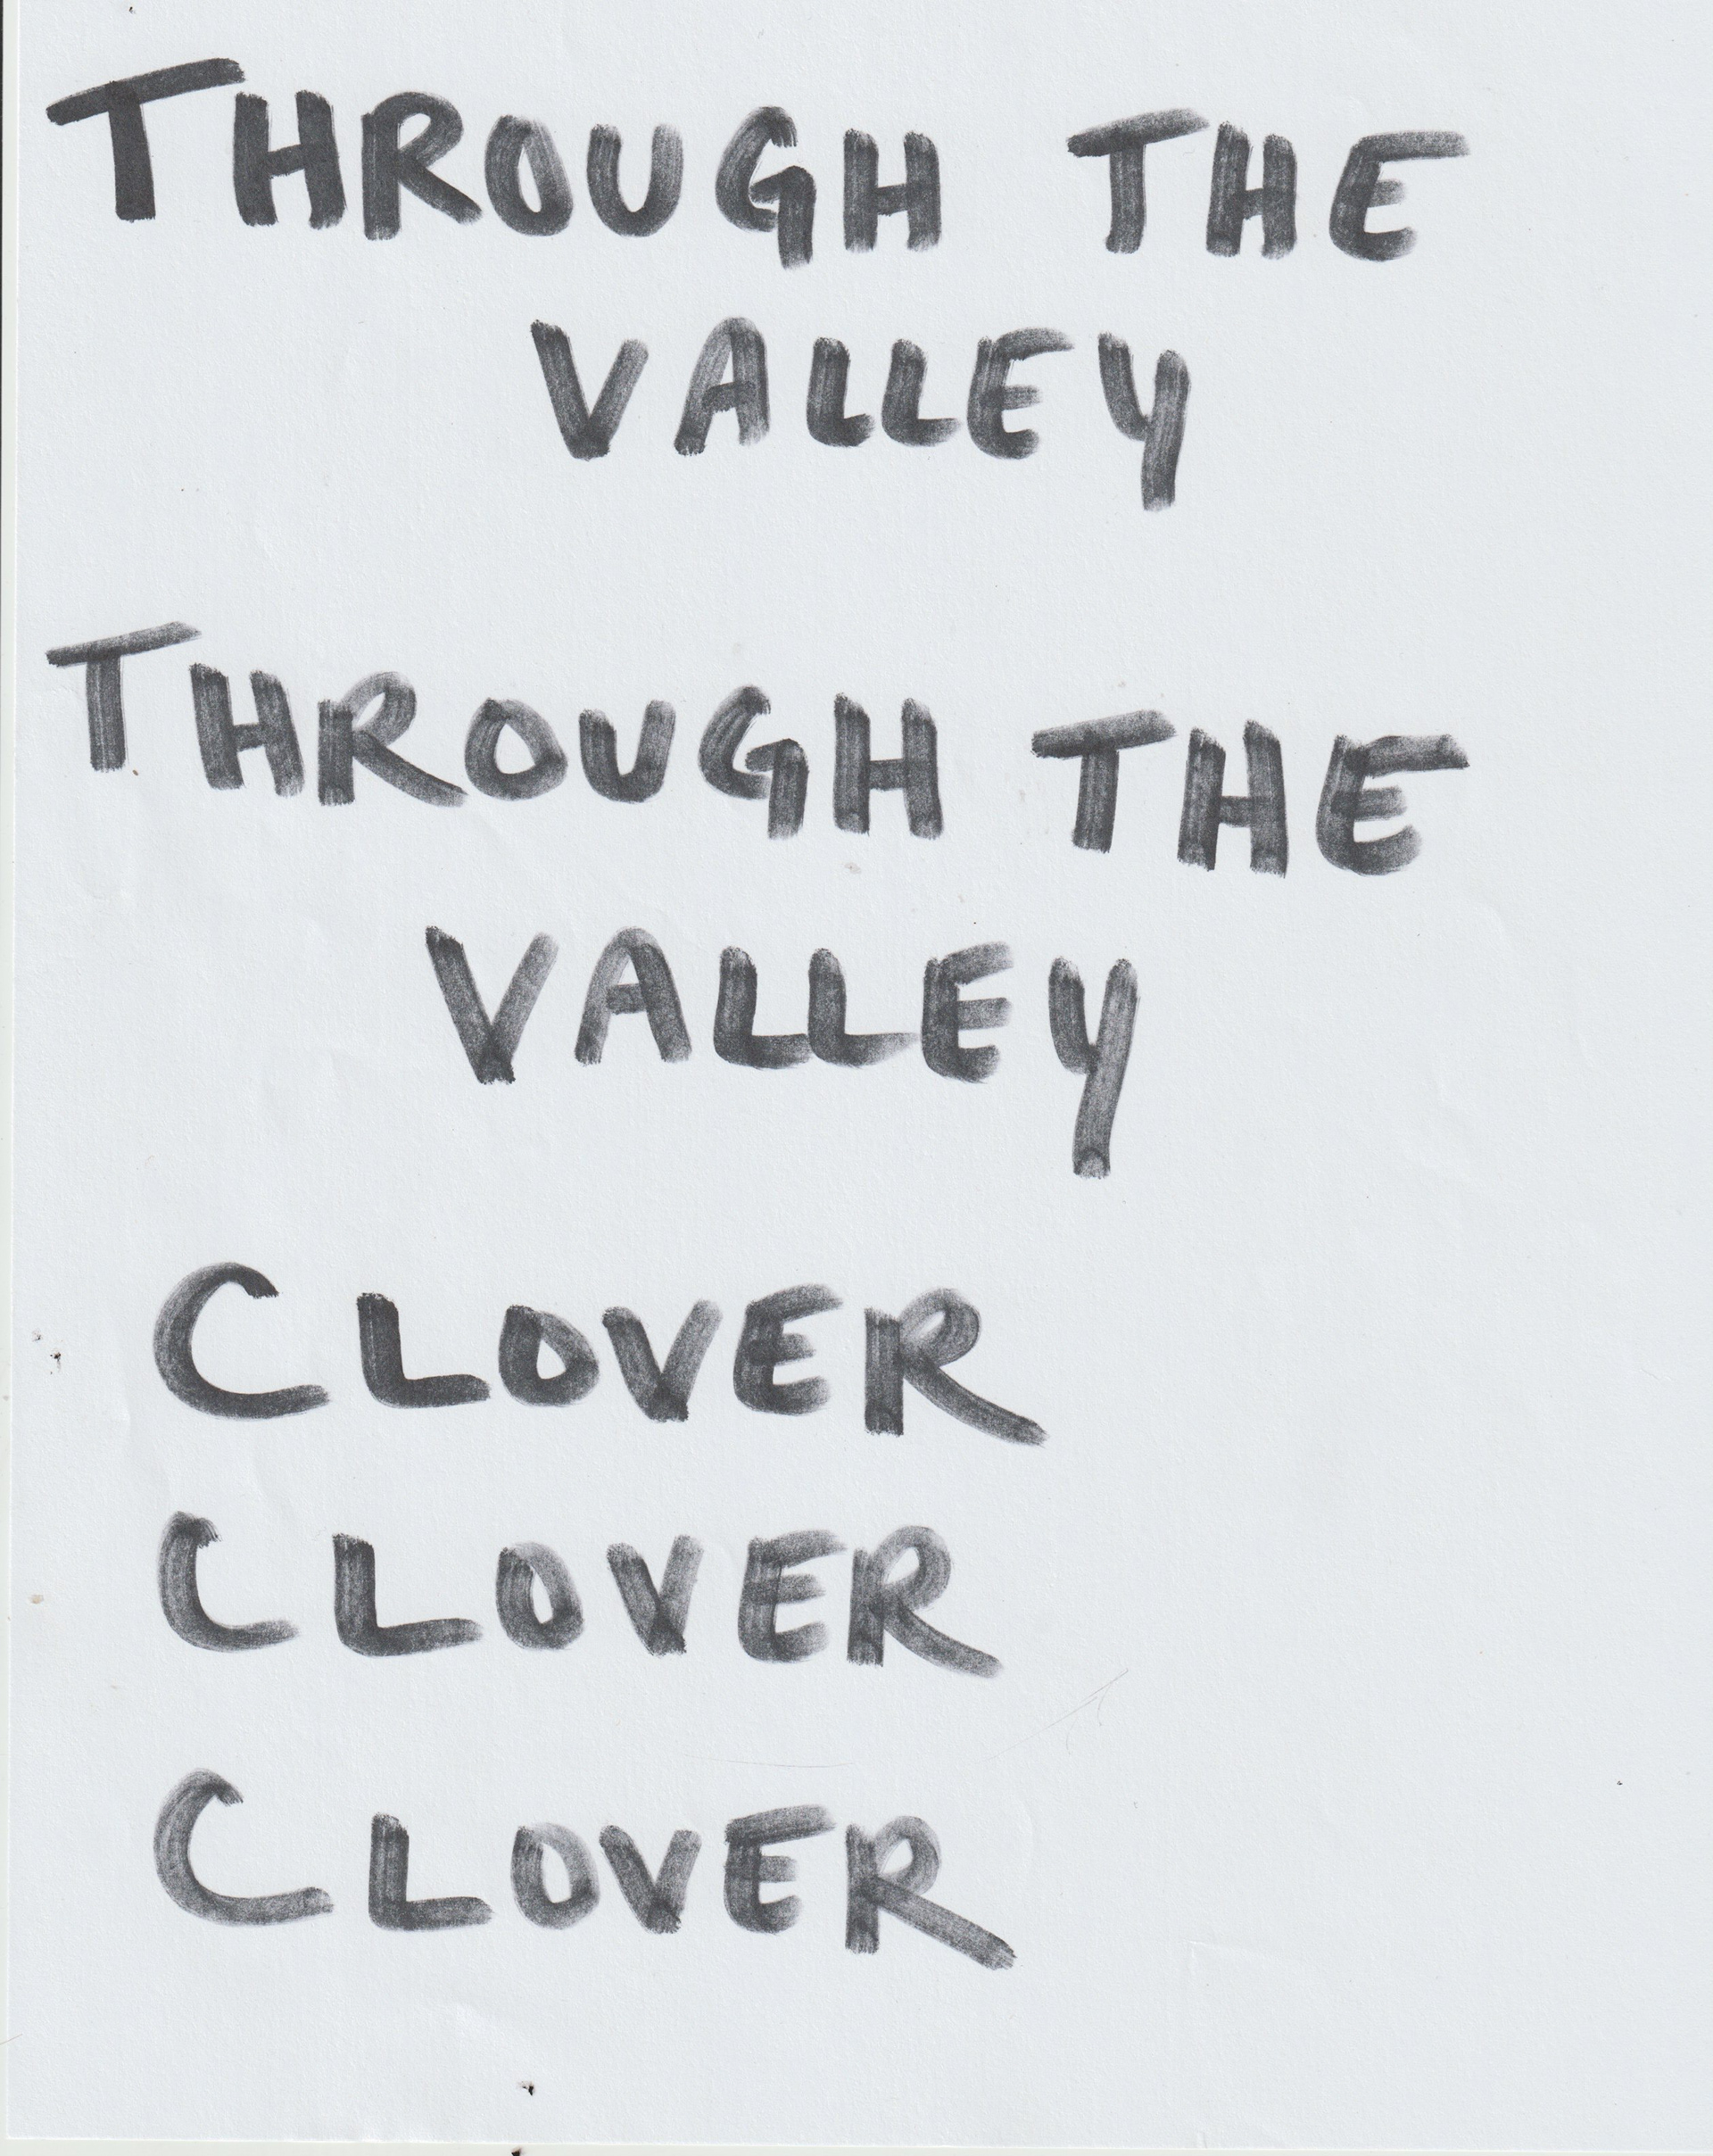 THROUGH THE
VALLEY
THROUGH THE
VALLEY
CLOVER
CLOVER
CLOVER